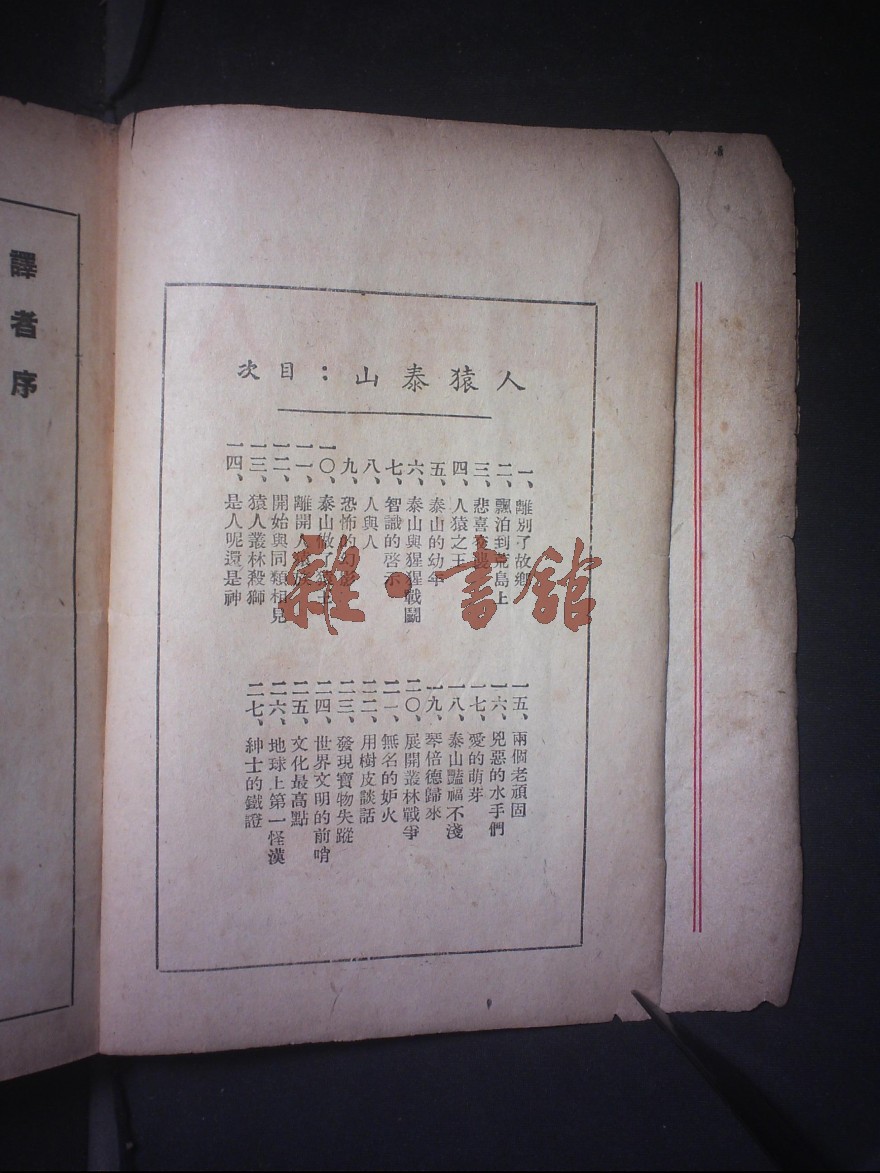 人猿泰山：目次
一、離別了故鄉
二、飄泊到荒島上
三、悲喜
四、人猿之王
五、泰山的幼年
六、泰山與猩猩戰鬭
七、智識的啓示
八、人與人
九、恐怖的幻
一〇、泰山做了猿王
一一、離開人猿族
一二、開始與同類相見
一三、猿人叢林殺獅
一四、是人呢還是神
一五、兩個老頑固
一六、兇惡的水手們
一七、愛的萌芽
一八、泰山豔福不淺
一九、琴倍德歸來
二〇、展開叢林戰爭
二一、無名的妒火
二二、用樹皮談話
二三、發現寶物失蹤
二四、世界文明的前哨
二五、文化最高點
二六、地球上第一怪漢
二七、紳士的鐵證
譯者序
雜·書館